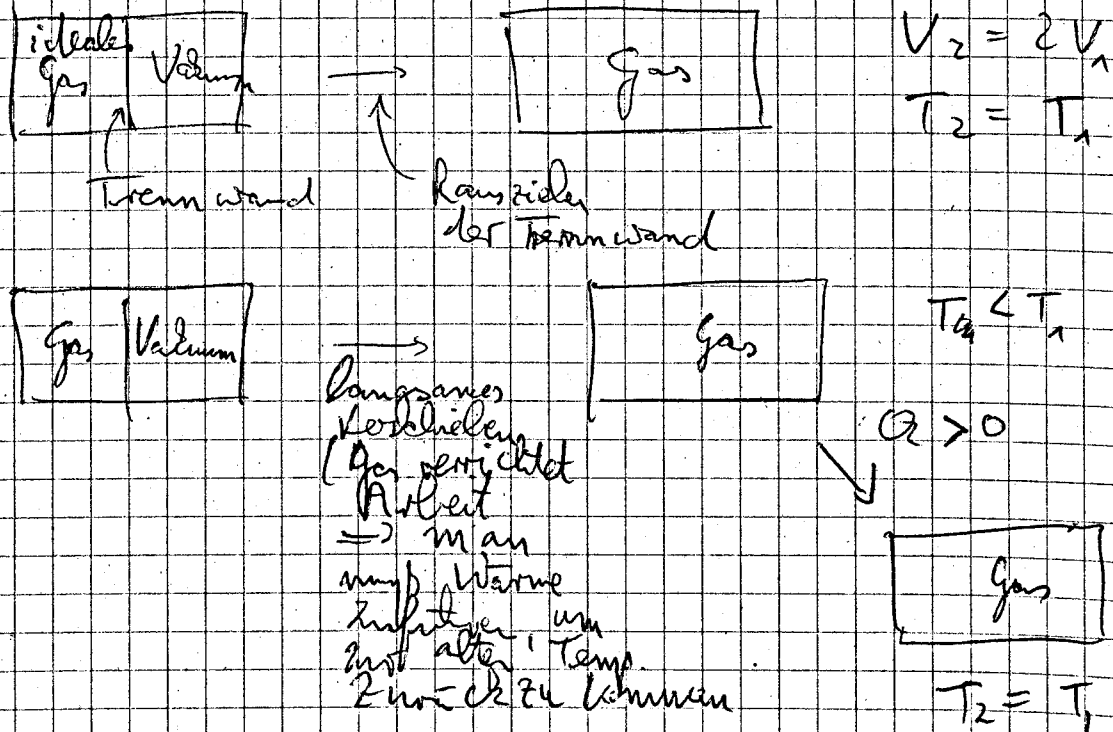 ideales
Gas
Vakuum
Gas
V₂ = 2 V₁
T₂ = T₁
Trennwand
Rausziehen
der Trennwand
Gas
Vakuum
Gas
T < T₁
langsames
Verschieben
(Gas verrichtet
Arbeit
=> man
muß Wärme
zuführen, um
zur alten Temp.
zurück zu kommen
Q > 0
Gas
T₂ = T₁